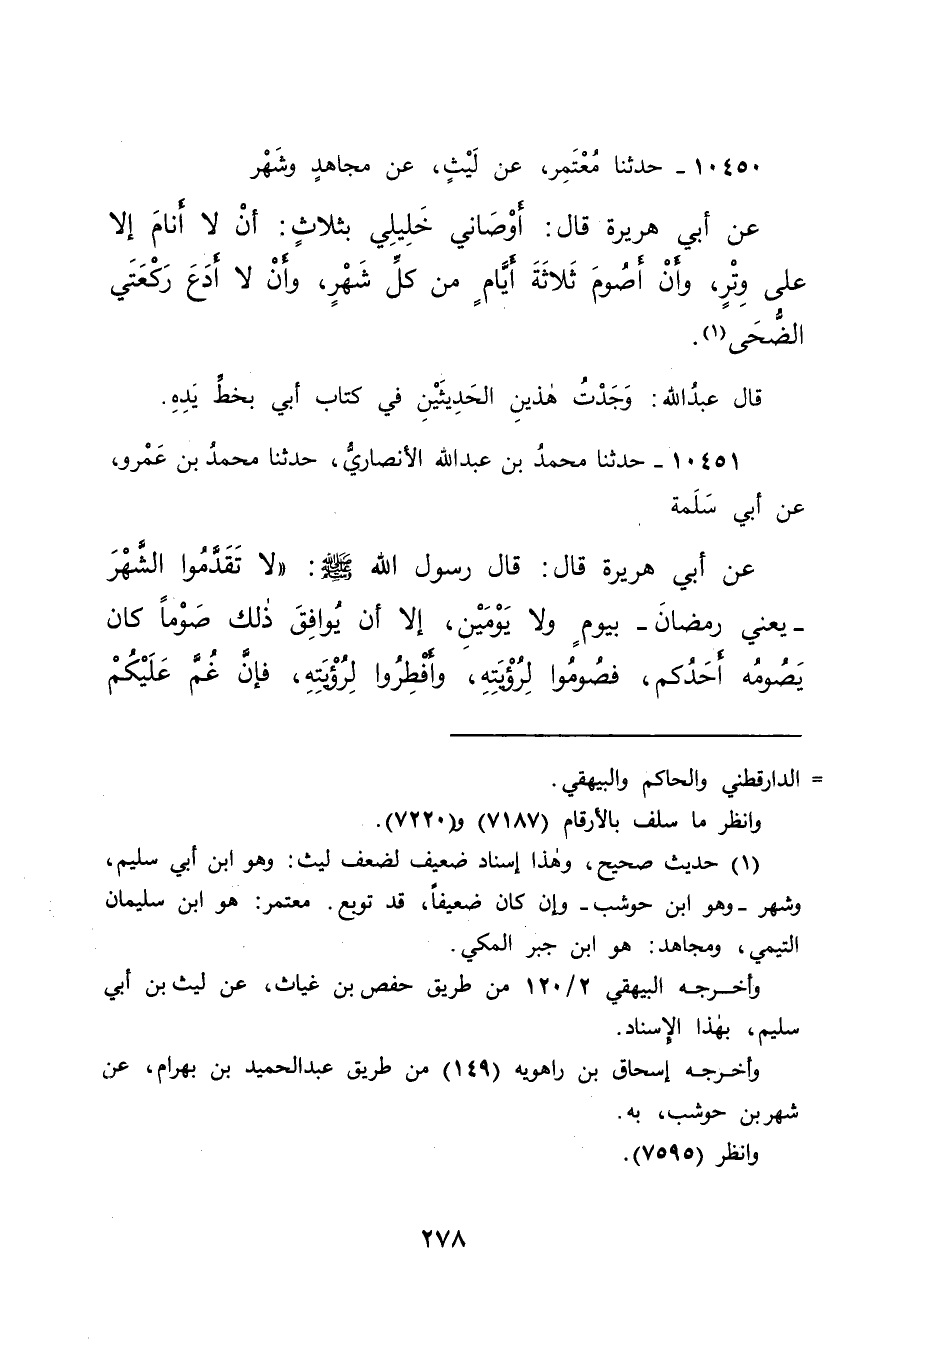 ١٠٤٥٠ - حدثنا مُعْتَمِر، عن لَيْثٍ، عن مجاهدٍ وشَهْر
عن أبي هريرة قال: أَوْصَاني خَلِيلِي بثلاثٍ: أنْ لا أَنامَ إلا
على وِتْرٍ، وأَنْ أَصُومَ ثَلاثَةَ أَيَّامٍ من كلِّ شَهْرٍ، وأَنْ لا أَدَعَ رَكْعَتَي
الضُّحَى(١).
قال عبدُالله: وَجَدْتُ هٰذينِ الحَدِيثَيْنِ في كتاب أبي بخطِّ يَدِهِ.
١٠٤٥١ - حدثنا محمدُ بن عبدالله الأنصاريُّ، حدثنا محمدُ بن عَمْرو،
عن أبي سَلَمة
عن أبي هريرة قال: قال رسول الله ﷺ: «لا تَقَدَّمُوا الشَّهْرَ
- يعني رمضانَ - بيومٍ ولا يَوْمَيْنِ، إلا أن يُوافِقَ ذٰلك صَوْماً كان
يَصُومُه أَحَدُكم، فصُومُوا لِرُؤْيَتِهِ، وأَفْطِرُوا لِرُؤْيَتِه، فإنَّ غُمَّ عَلَيْكُمْ
= الدارقطني والحاكم والبيهقي.
وانظر ما سلف بالأرقام (٧١٨٧) و(٧٢٢٠).
(١) حديث صحيح، وهٰذا إسناد ضعيف لضعف ليث: وهو ابن أبي سليم،
وشهر - وهو ابن حوشب - وإن كان ضعيفاً، قد توبع. معتمر: هو ابن سليمان
التيمي، ومجاهد: هو ابن جبر المكي.
وأخرجه البيهقي ١٢٠/٢ من طريق حفص بن غياث، عن ليث بن أبي
سليم، بهٰذا الإسناد.
وأخرجه إسحاق بن راهويه (١٤٩) من طريق عبدالحميد بن بهرام، عن
شهر بن حوشب، به.
وانظر (٧٥٩٥).
٢٧٨